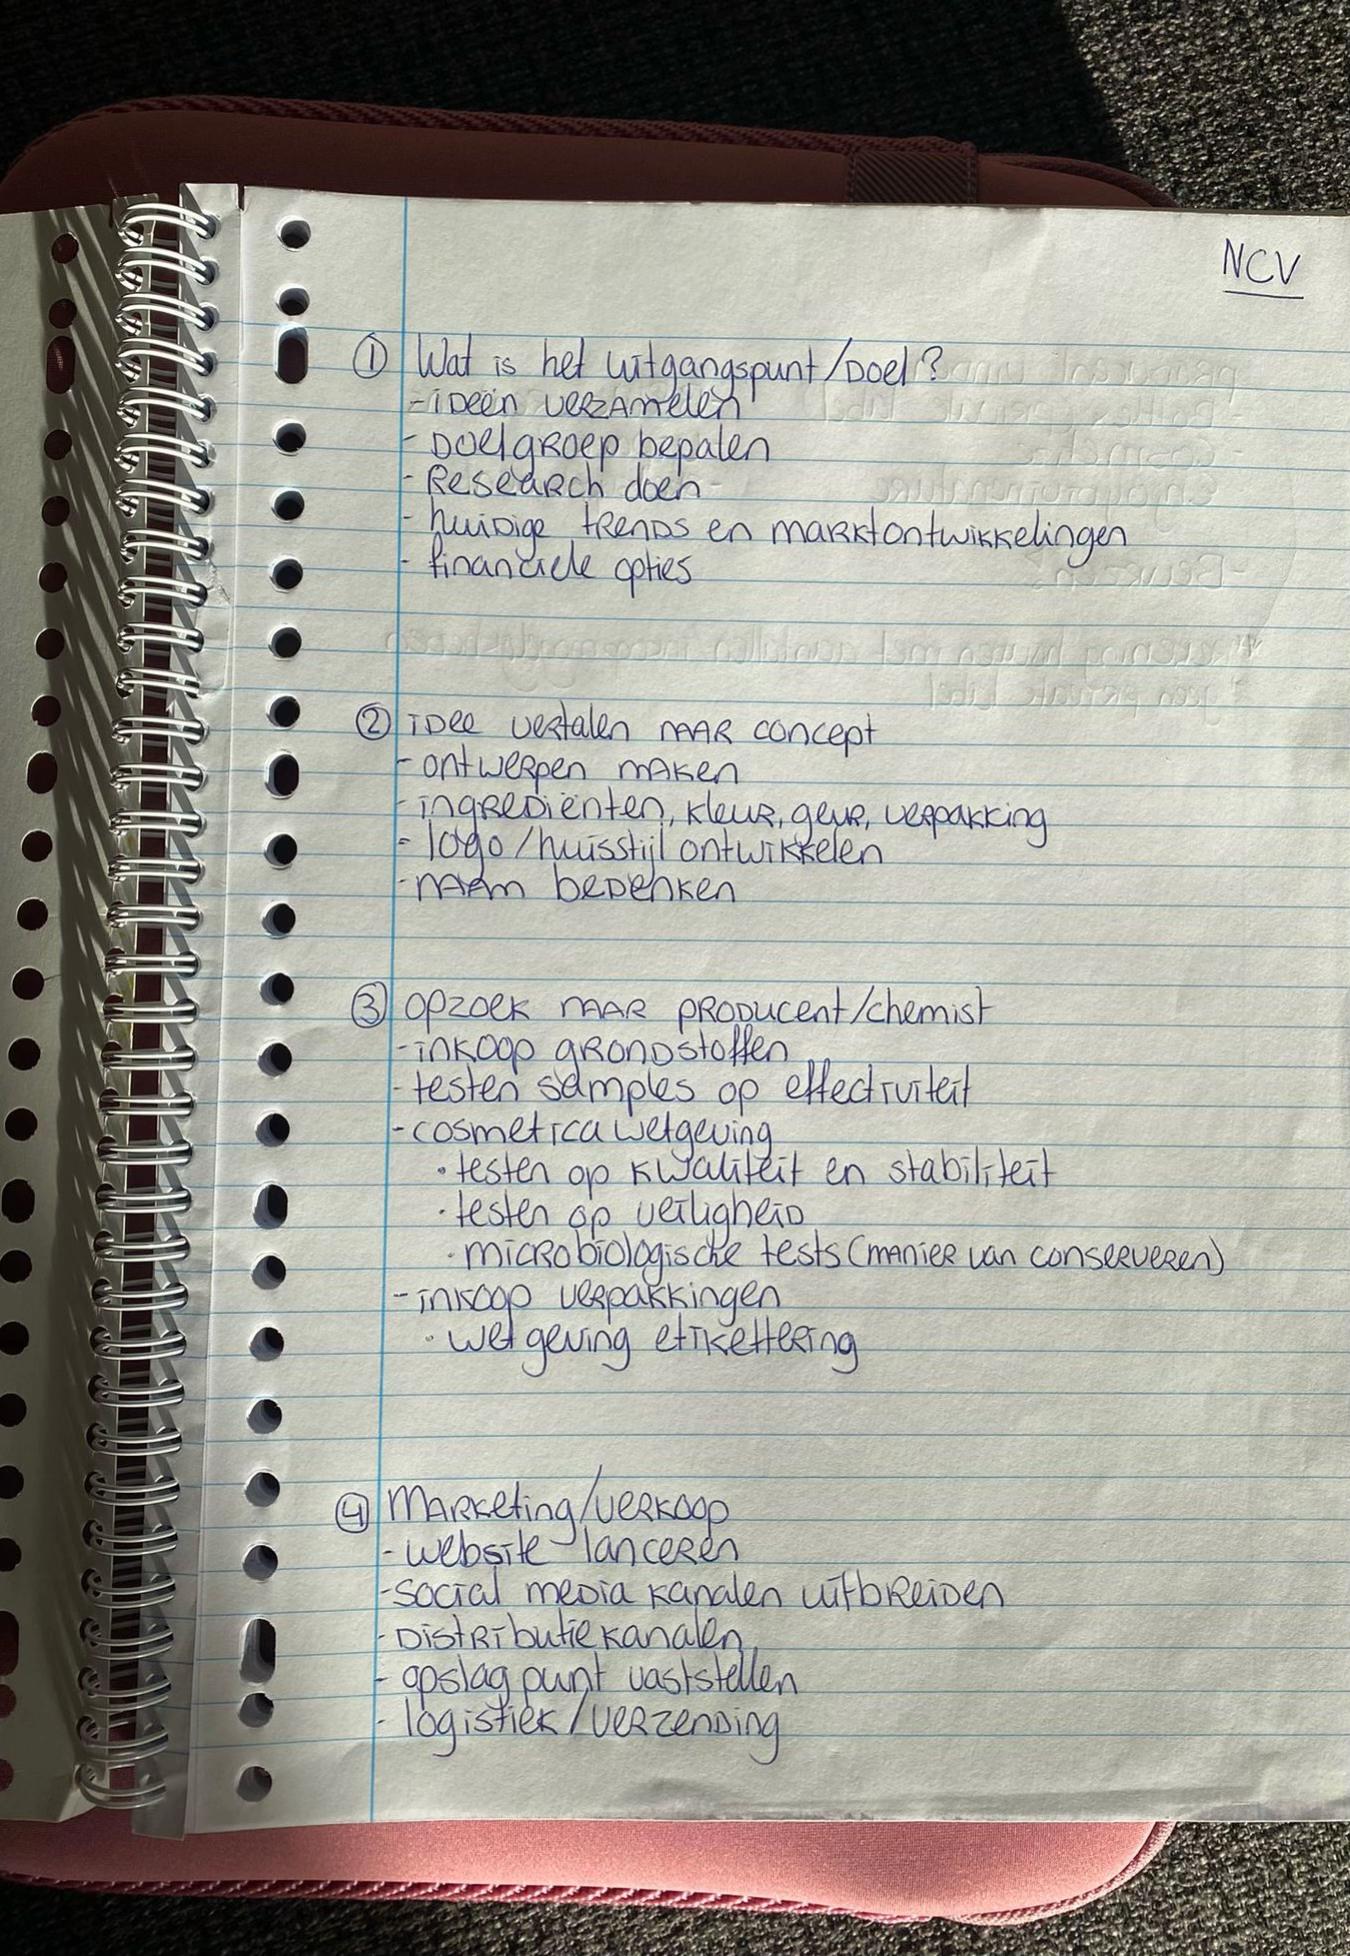 NCV
① Wat is het uitgangspunt/Doel?
- ideeën verzamelen
- Doelgroep bepalen
- Research doen
- huidige trends en marktontwikkelingen
- financiele opties
② idee vertalen naar concept
- ontwerpen maken
- ingrediënten, kleur, geur, verpakking
- logo/huisstijl ontwikkelen
- naam bedenken
③ opzoek naar producent/chemist
- inkoop grondstoffen
- testen samples op effectiviteit
- cosmetica wetgeving
• testen op kwaliteit en stabiliteit
• testen op veiligheid
• microbiologische tests (manier van conserveren)
- inkoop verpakkingen
• wetgeving etikettering
④ Marketing/verkoop
- website lanceren
- social media kanalen uitbreiden
- Distributiekanalen
- opslag punt vaststellen
- logistiek/verzending